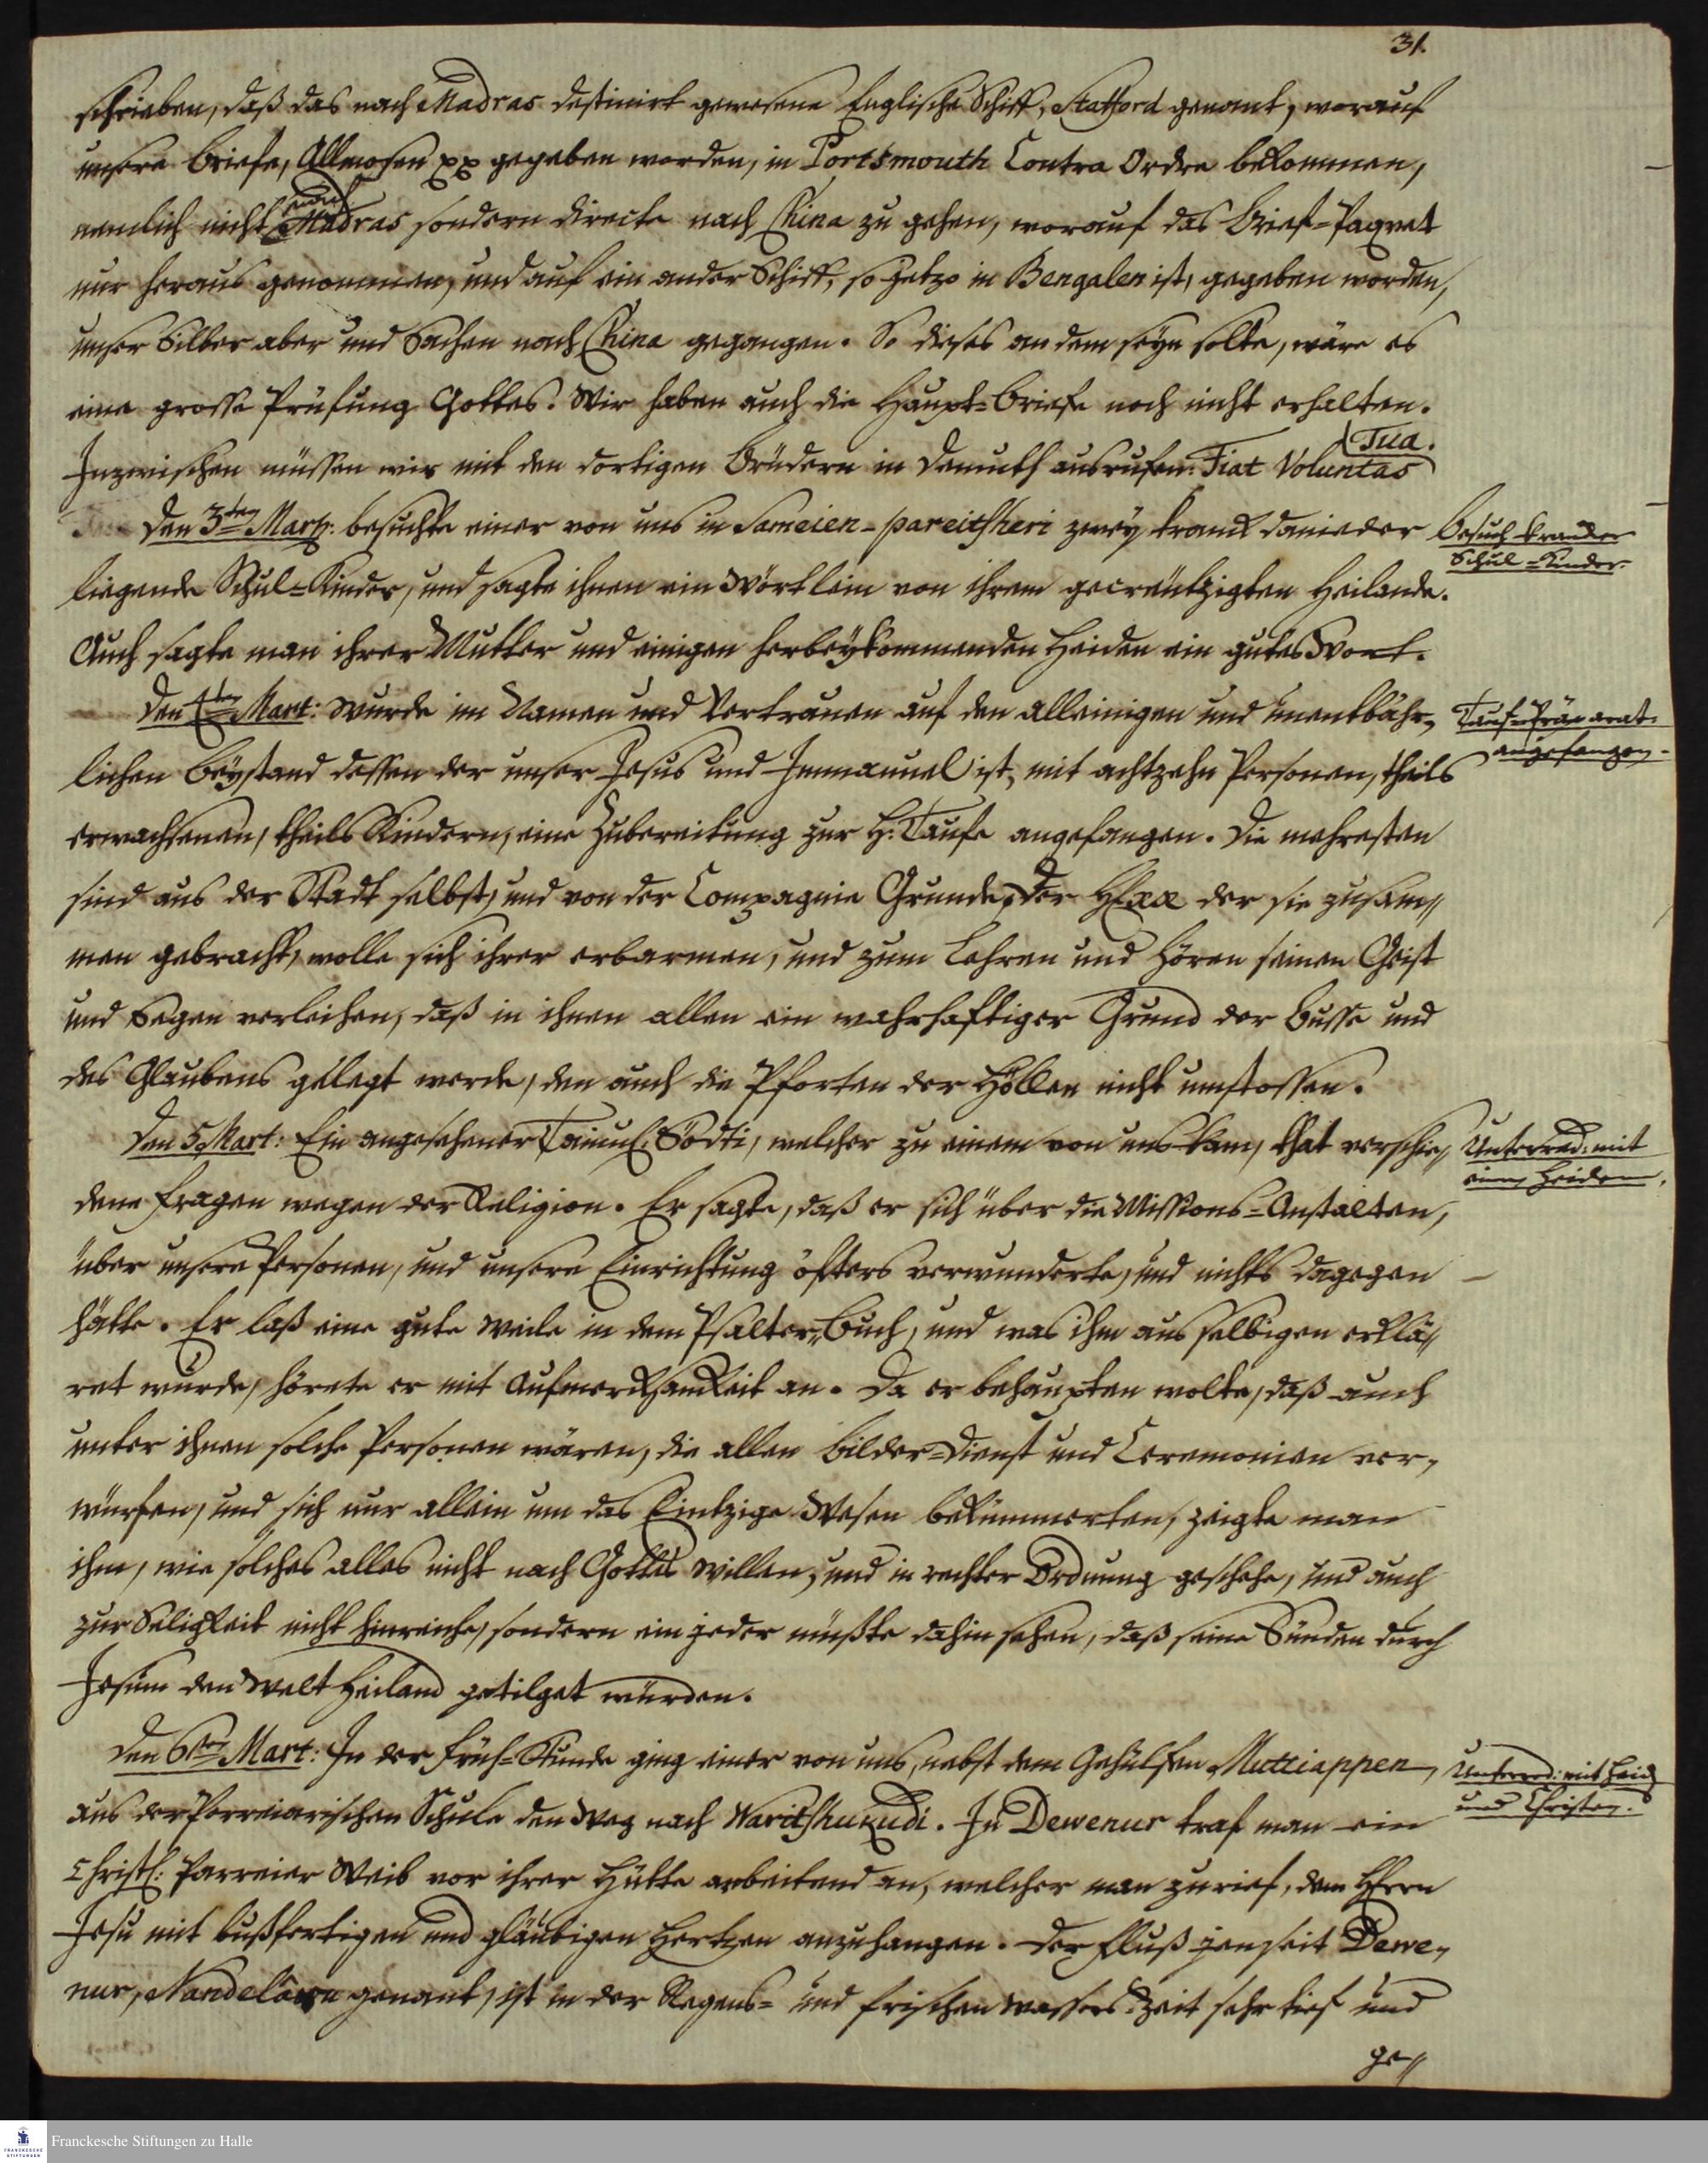 31.
schrieben, daß das nach Madras destinirt gewesene Englische Schiff, Stafford genant, worauf
unsere Briefe, Allmosen pp gegeben worden, in Portsmouth Contra Ordre bekommen,
nemlich nicht nach Madras sondern directe nach China zu gehen, worauf das Brief-Paqvet
nur heraus genommen, und auf ein ander Schiff, so jetzo in Bengalen ist, gegeben worden,
unser Silber aber und Sachen nach China gegangen. So dieses an dem seyn solte, wäre es
eine grosse Prüfung Gottes. Wir haben auch die Haupt-Briefe noch nicht erhalten.
Inzwischen müssen wir mit den dortigen Brüdern in Demuth ausrufen: Fiat Voluntas Tua.
Den 3ten Mart: besuchte einer von uns in Sameien-pareitsheri zwey kranck danieder
Besuch krancker
Schul-Kinder.
liegende Schul-Kinder, und sagte ihnen ein Wörtlein von ihrem gecreutzigten Heilande.
Auch sagte man ihrer Mutter und einigen herbeykommenden Heiden ein gutes Wort.
Den 4ten Mart: wurde im Namen und Vertrauen auf den alleinigen und unentbähr-
Tauf-Präparat.
angefangen.
lichen Beystand dessen der unser Jesus und Immanuel ist, mit achtzehn Personen, theils
erwachsenen, theils Kindern, eine Zubereitung zur H: Taufe angefangen. Die mehresten
sind aus der Stadt selbst, und von der Compagnie Grunde. Der HErr der sie zusam-
men gebracht, wolle sich ihrer erbarmen, und zum Lehren und Hören seinen Geist
und Segen verleihen, daß in ihnen allen ein wahrhaftiger Grund der Busse und
des Glaubens gelegt werde, den auch die Pforten der Höllen nicht umstossen.
Den 5 Mart: Ein angesehener Tamul. Södti, welcher zu einem von uns kam, that verschie-
Unterred: mit
einem Heiden.
dene Fragen wegen der Religion. Er sagte, daß er sich über die Missions-Anstalten,
über unsere Personen, und unsere Einrichtung öfters verwunderte, und nichts dagegen
hätte. Er laß eine gute weile in dem Psalter-Buch, und was ihm aus selbigen erklä-
ret wurde, hörete er mit Aufmercksamkeit an. Da er behaupten wolte, daß auch
unter ihnen solche Personen wären, die allen Bilder-Dienst und Ceremonien ver-
würfen, und sich nur allein um das Eintzige Wesen bekümmerten, zeigte man
ihm, wie solches alles nicht nach Gottes willen, und in rechter Ordnung geschehe, und auch
zur Seligkeit nicht hinreiche, sondern ein jeder müßte dahin sehen, daß seine Sünden durch
Jesum den Welt Heiland getilget würden.
Den 6ten Mart: In der Früh-Stunde ging einer von uns, nebst dem Gehülfen Muttiappen,
Unterred: mit Heid:
und Christen.
aus der Parreiarischen Schule den Weg nach Waritshukudi. In Dewenur traf man ein
Christl: Parreier Weib vor ihrer Hütte arbeitend an, welcher man zurief, dem HErrn
Jesu mit bußfertigen und gläubigen Hertzen anzuhangen. Der Fluß jenseit Dewe-
nur, genant, ist in der Regens- und frischen Wassers-Zeit sehr tief und
ge-
Franckesche Stiftungen zu Halle